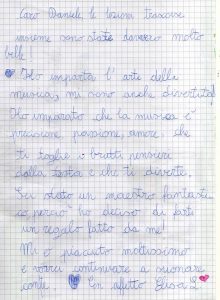 Caro Daniele le lezioni trascorse
insieme sono state davvero molto
belle!
Ho imparato l'arte della
musica, mi sono anche divertita!
Ho imparato che la musica è
precisione, passione, amore, che
ti toglie i brutti pensieri
dalla testa e che ti diverte.
Sei stato un maestro fantastico
e perciò ho deciso di farti
un regalo fatto da me!
Mi è piaciuto moltissimo
e vorrei continuare a suonare
così. Con affetto Elisa